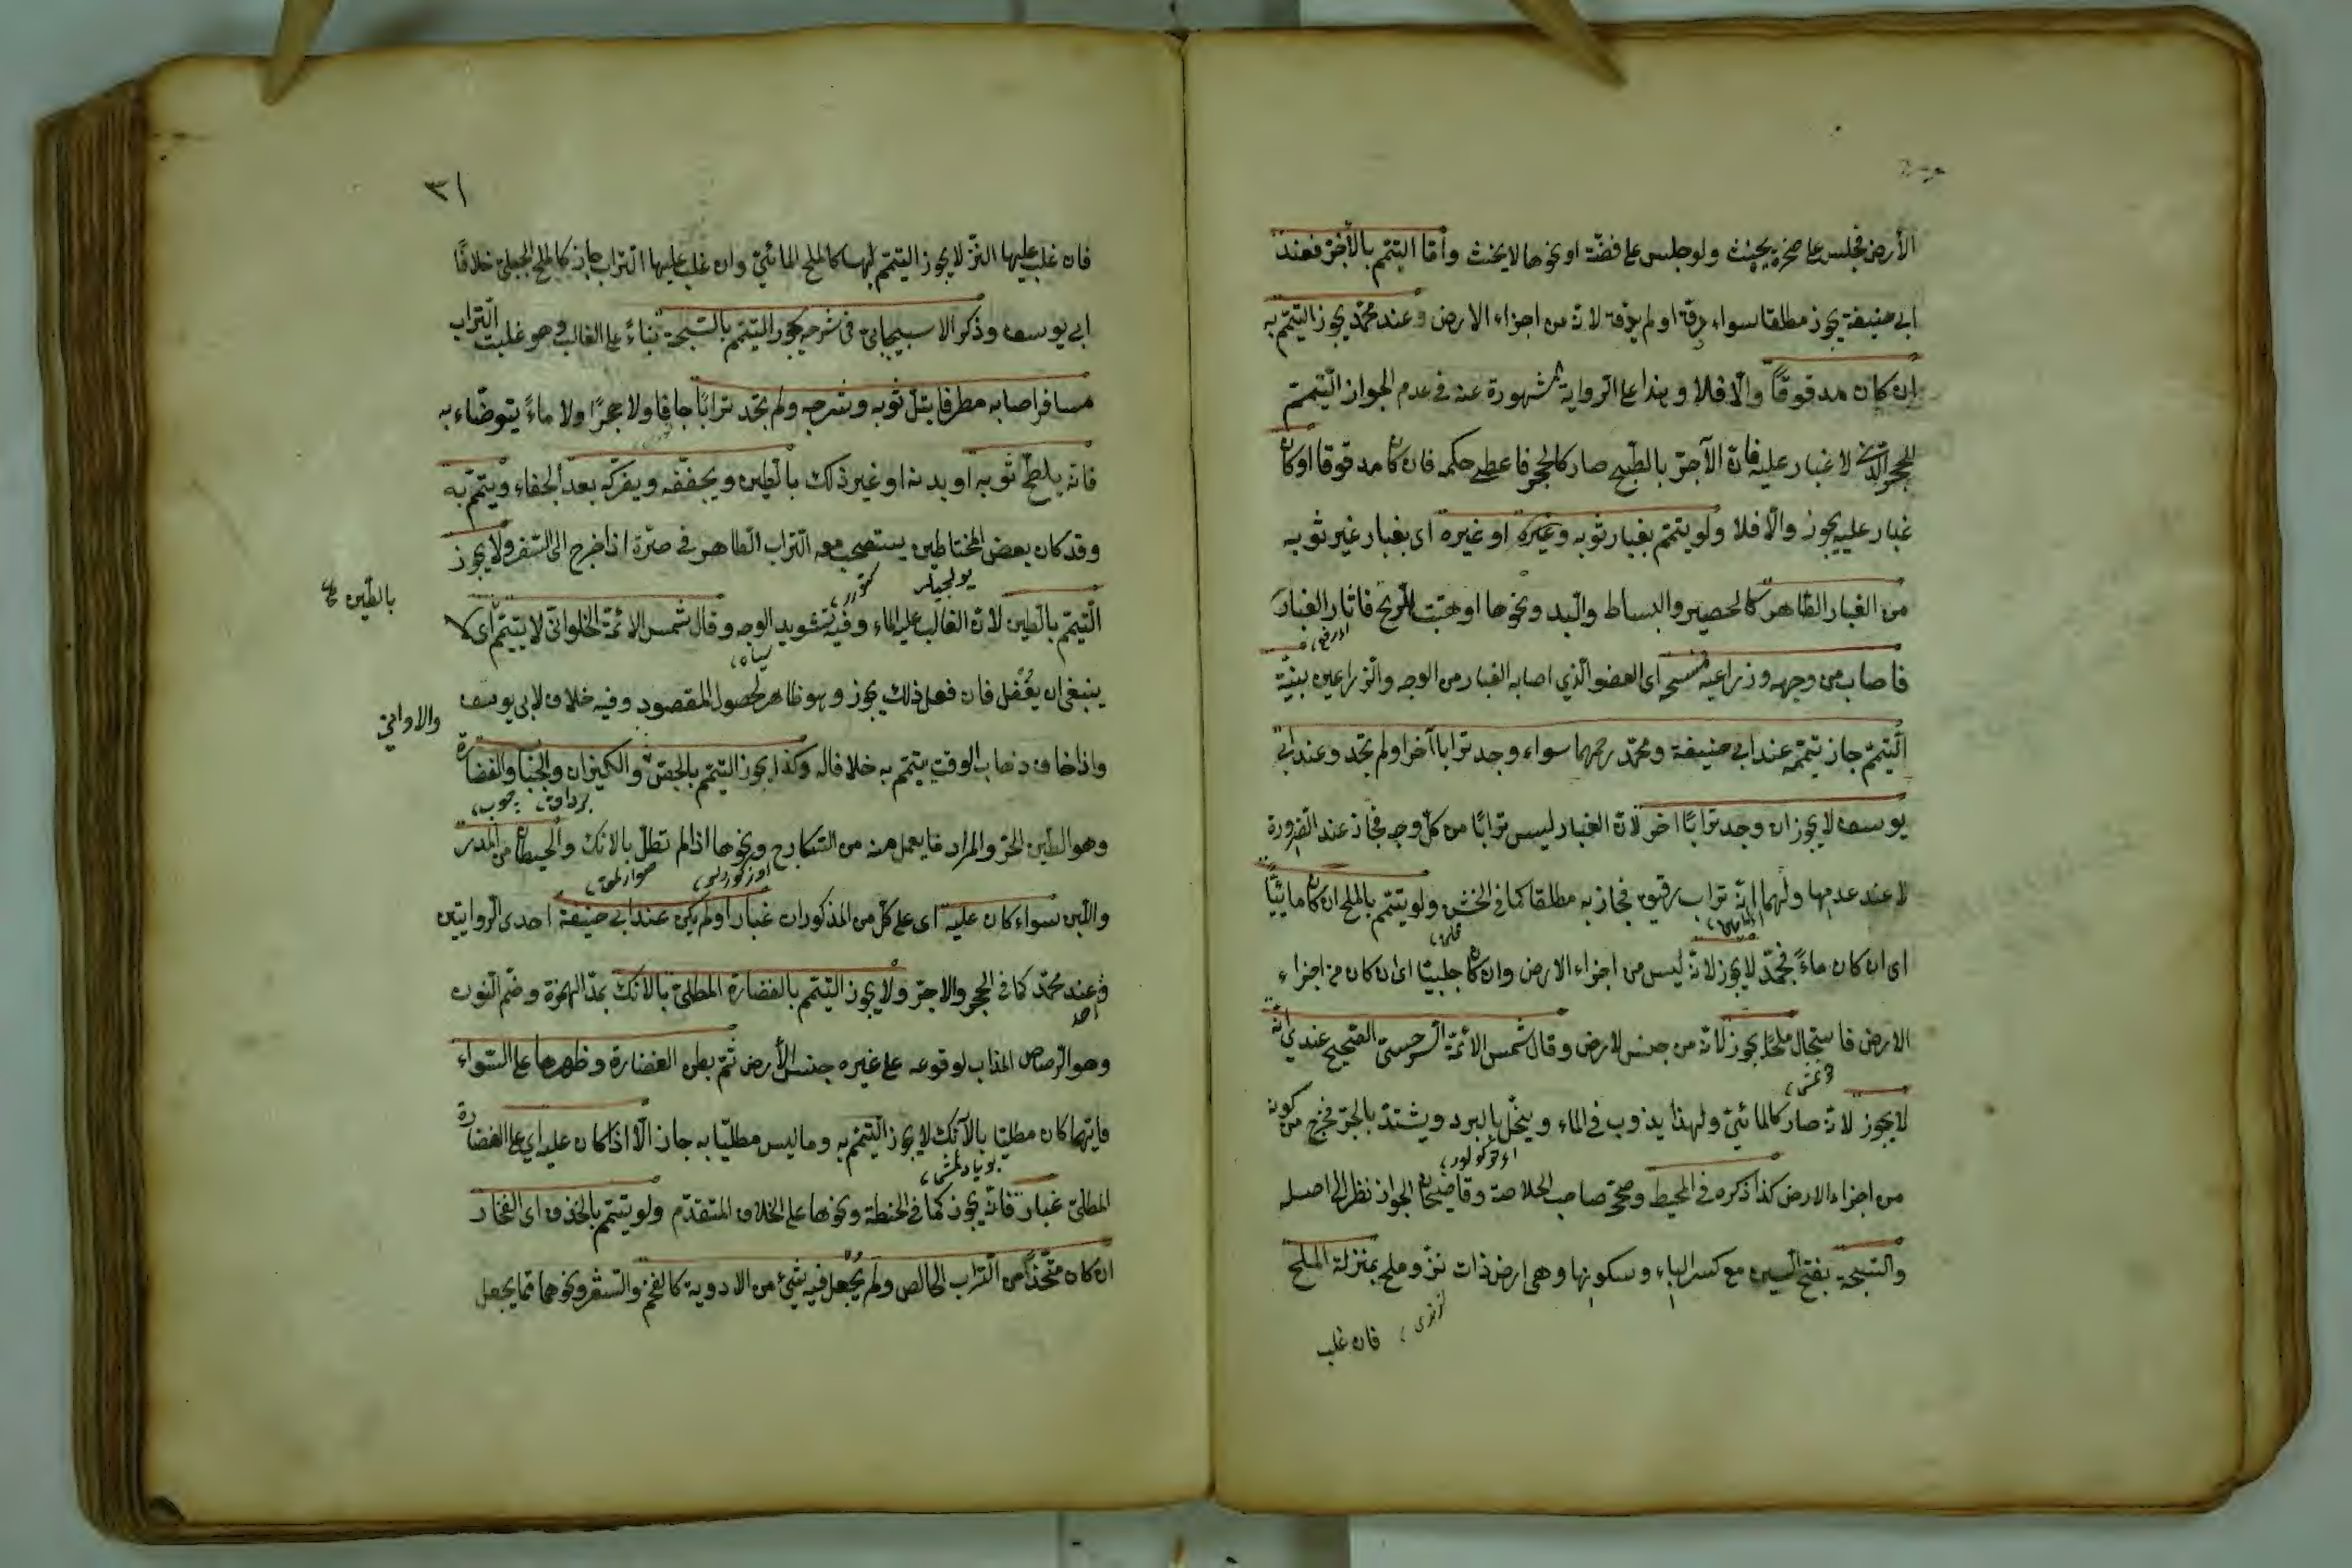 الأرض فجلس على صخرة يحنث ولو جلس على فضّة او نحوها لا يحنث وأمّا التيمّم بالآجُرّ فعند
ابى حنيفة يجوز مطلقا سواء دقّه او لم يدقّه لانّه من اجزاء الارض وعند محمّد يجوز التيمّم به
إن كان مدقوقًا والّا فلا وهذا على الرواية المشهورة عنه فى عدم الجواز التيمّم
للحجر الّذى لا غبار عليه فانّ الآجرّ بالطّبخ صار كالحجر فاعطى حكمه فان كان مدقوقا او كان
غبار عليه يجوز والّا فلا ولو تيمّم بغبار ثوبه وغيره او غيره اى بغبار غير ثوبه
من الغبار الطّاهر كالحصير والبساط واللّبد ونحوها او هبّت الرّيح فاثار الغبار
فاصاب من وجهه وذراعيه فمسح اى العضو الّذي اصابه الغبار من الوجه والذّراعين بنيّة
التّيمّم جاز تيمّمه عند ابى حنيفة ومحمّد رحمهما سواء وجد ترابا آخر او لم يجد وعند ابى
يوسف لا يجوز ان وجد ترابًا اخر لانّ الغبار ليس ترابًا من كلّ وجه فجاز عند الضّرورة
لا عند عدمها ولهما انّه تراب رقيق فجاز به مطلقا كما فى الخشن ولو تيمّم بالملح ان كان مائيّا
اى ان كان ماءً فجمّد لا يجوز لانّه ليس من اجزاء الارض وان كان جبليّا اى ان كان من اجزاء
الارض فاستحال ملحًا يجوز لانّه من جنس الارض وقال شمس الائمّة السّرخسىّ الصّحيح عندي انّه
لا يجوز لانّه صار كالمائىّ ولهذا يذوب فى الماء وينحلّ بالبرد ويشتدّ بالحرّ فخرج من كونه
من اجزاء الارض كذا ذكره فى المحيط وصحّح صاحب الخلاصة وقاضيخان الجواز نظرا الى اصله
والسّبخة بفتح السّين مع كسر الباء وسكونها وهى ارض ذات نزّ وملح بمنزلة الملح
فان غلب
٣١
فان غلب عليها النّزّ لا يجوز التيمّم بها كالملح المائىّ وان غلب عليها التراب جاز كالملح الجبلىّ خلافًا
ابي يوسف وذكر الاسبيجابىّ فى شرحه يجوز التيمّم بالسّبخة بناءً على الغالب وهو غلبت التراب
مسافر اصابه مطر فابتلّ ثوبه وسرجه ولم يجد ترابًا جافا ولا حجرًا ولا ماءً يتوضّاء به
فانّه يلطّخ ثوبه او بدنه او غير ذلك بالطين ويجفّفه ويفركه بعد الجفاء ويتيمّم به
وقد كان بعض المحتاطين يستصحب معه التّراب الطّاهر فى صرّة اذا خرج الى السّفر ولا يجوز
التّيمّم بالطين لانّ الغالب عليه الماء وفيه تشويه الوجه وقال شمس الائمّة الحلوانىّ لا يتيمّم اى لا
بالطّين
ينبغى ان يفعل فان فعل ذلك يجوز وهو ظاهر لحصول المقصود وفيه خلاف لابى يوسف
واذا خاف ذهاب الوقت يتيمّم به خلافا له وكذا يجوز التيمّم بالجصّ والكيزان والحباب والغضارة
والاوانى
وهو الطين الحرّ والمراد ما يعمل منه من السّكارج ونحوها اذا لم تطل بالانك والحيطان من المدر
واللّبن سواء كان عليه اى على كلّ من المذكورات غبار او لم يكن عند ابى حنيفة احدى الرّوايتين
وعند محمّد كما فى الحجر والاجرّ ولا يجوز التّيمّم بالغضارة المطلىّ بالآنك بمدّ الهمزة وضمّ النّون
وهو الرّصاص المذاب لوقوعه على غيره جنس الأرض ثمّ بطن الغضارة وظهرها على السّواء
فايّهما كان مطليّا بالآنك لا يجوز التّيمّم به وما ليس مطليّا به جاز الّا اذا كان عليه اي على الغضارة
المطلىّ غبار فانّه يجوز كما فى الحنطة ونحوها على الخلاف المتقدّم ولو تيمّم بالخذف اى الفخار
ان كان متّخذًا من التّراب الخالص ولم يُجعل فيه شيئ من الادوية كالفحم والشّعر ونحوهما ممّا يجعل